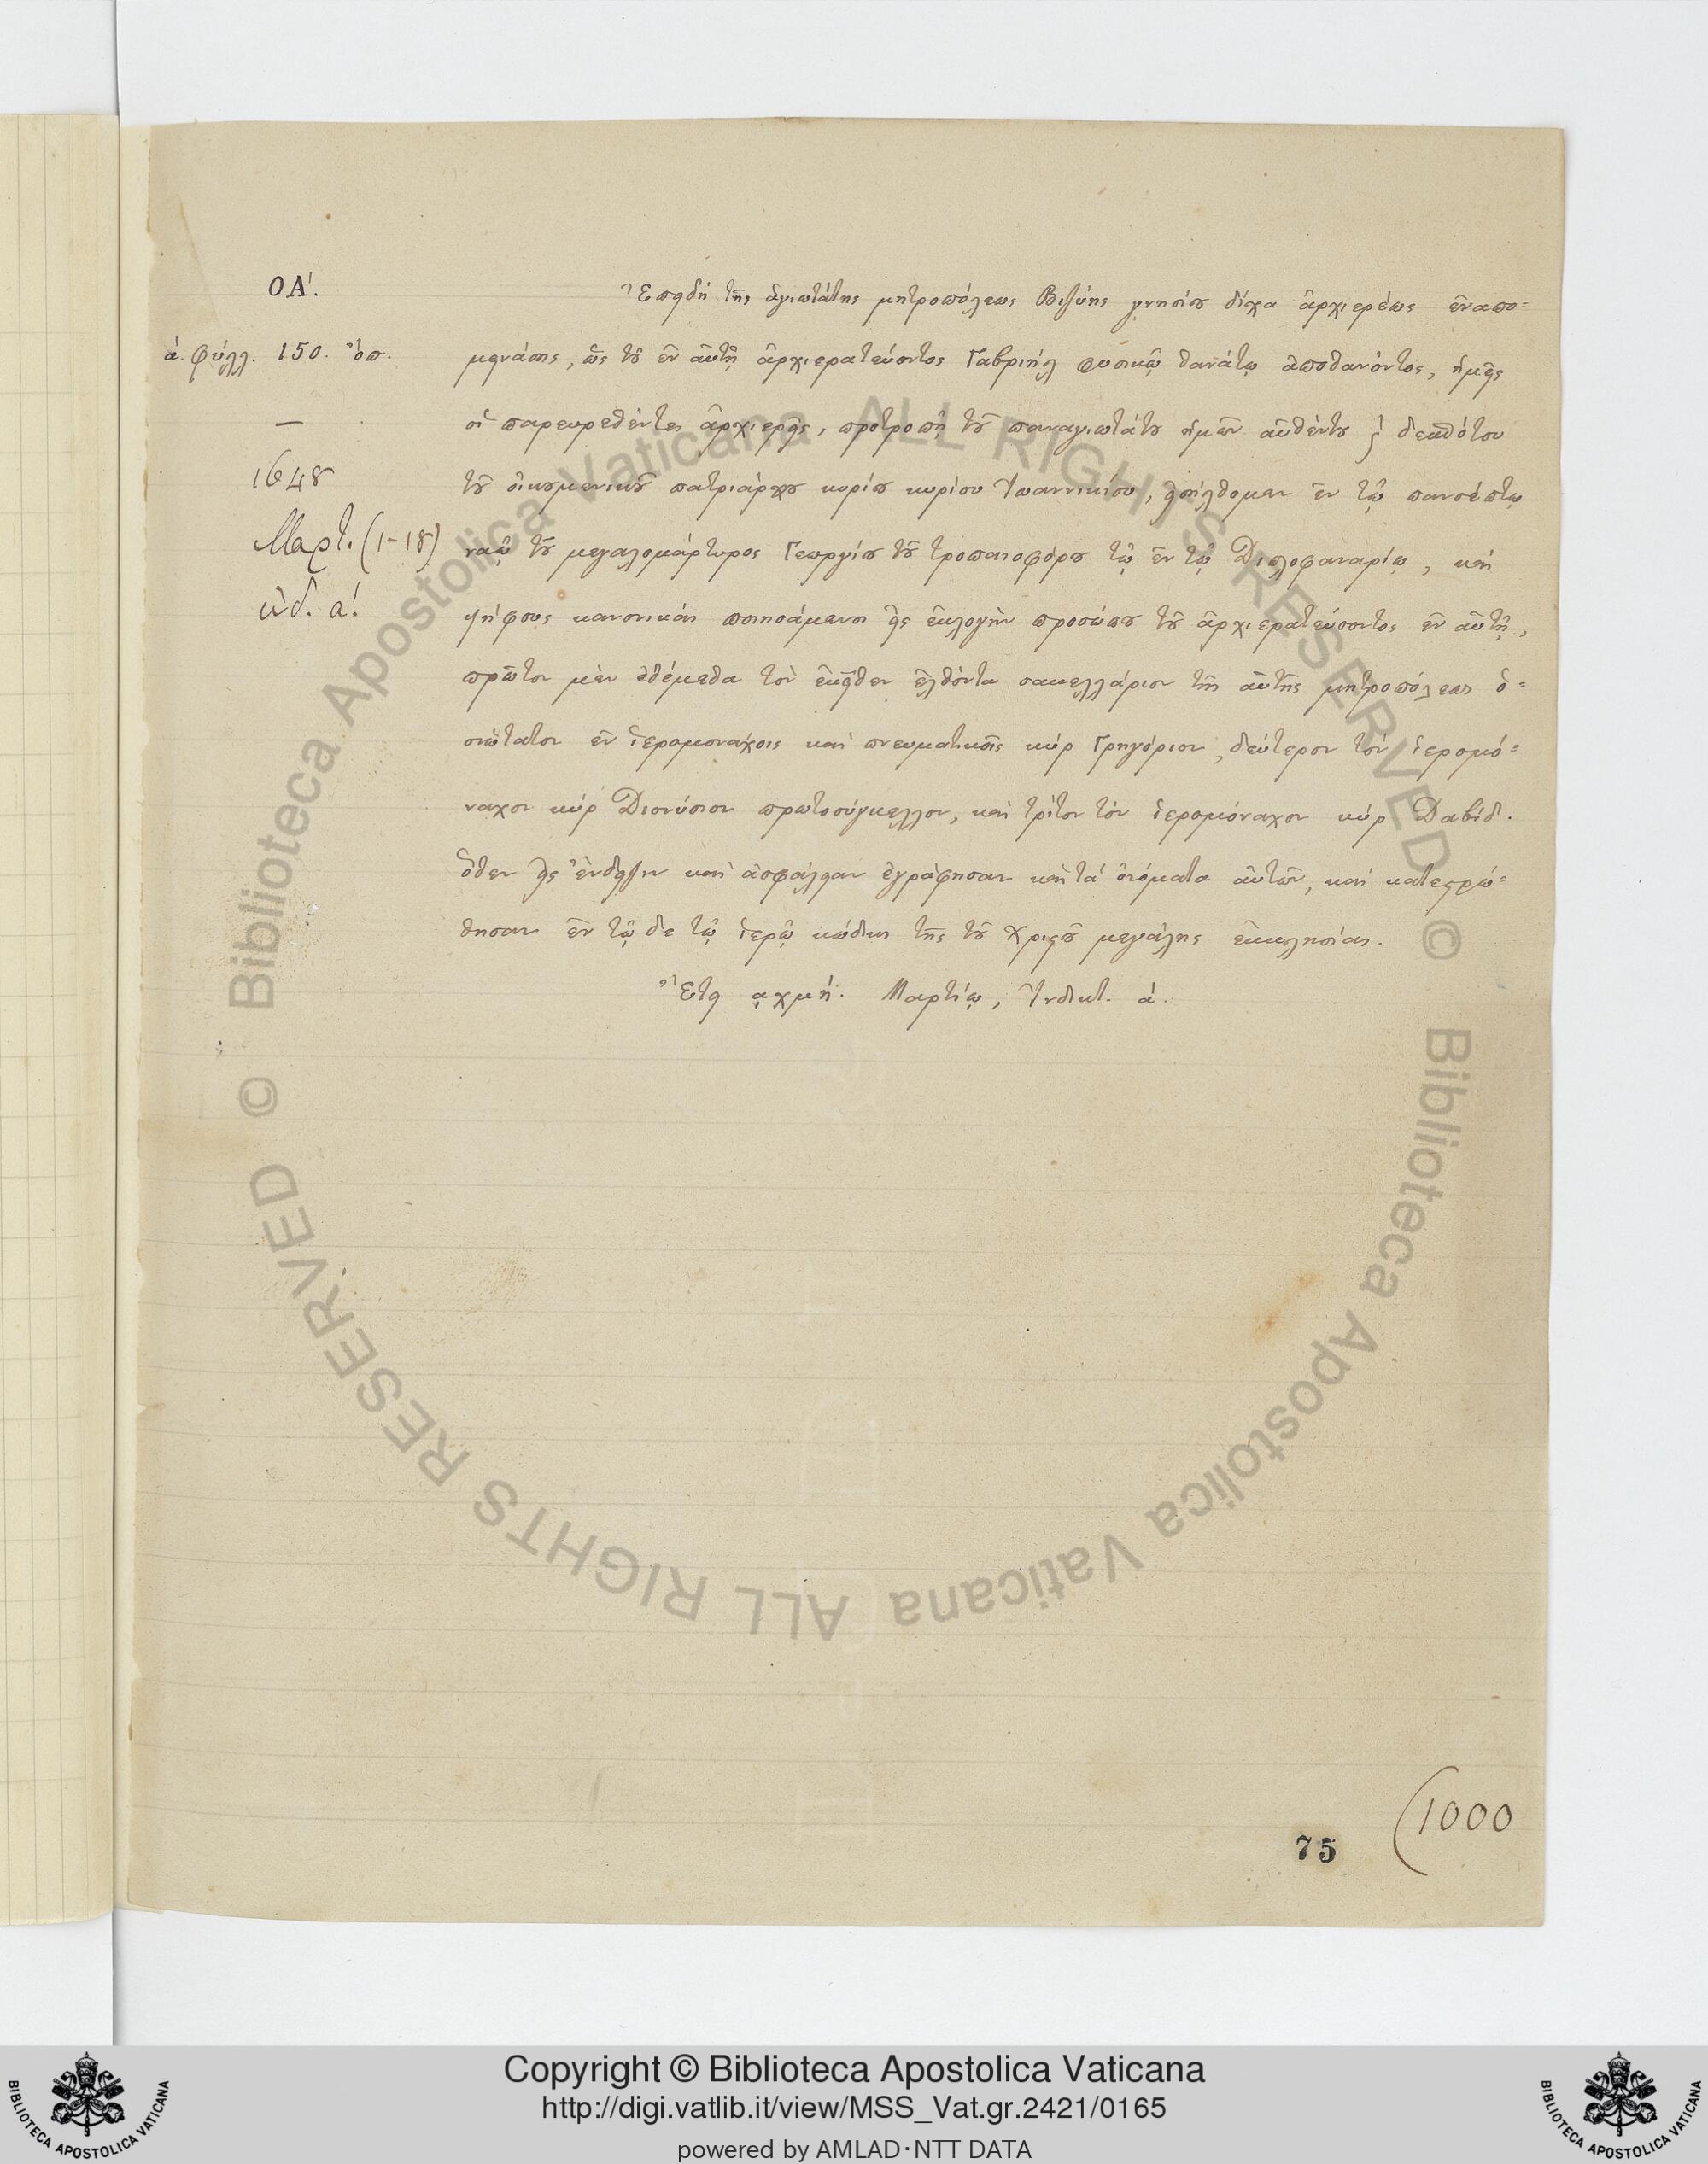 ΟΑ΄.
α΄. φύλλ. 150. ὄπ.
—
1648
Μαρτ. (1-18)
ἰνδ. α΄.
Ἐπειδὴ τῆς ἁγιωτάτης μητροπόλεως Βιζύης γνησίου δίχα ἀρχιερέως ἐναπο=
μεινάσης, ὡς τοῦ ἐν αὐτῇ ἀρχιερατεύοντος Γαβριὴλ φυσικῷ θανάτῳ ἀποθανόντος, ἡμεῖς
οἱ παρευρεθέντες ἀρχιερεῖς, προτροπῇ τοῦ παναγιωτάτου ἡμῶν αὐθέντου καὶ δεσπότου
τοῦ οἰκουμενικοῦ πατριάρχου κυρίου κυρίου Ἰωαννικίου, εἰσήλθομεν ἐν τῷ πανσέπτῳ
ναῷ τοῦ μεγαλομάρτυρος Γεωργίου τοῦ τροπαιοφόρου τῷ ἐν τῷ Διπλοφαναρίῳ, καὶ
ψήφους κανονικὰς ποιησάμενοι εἰς ἐκλογὴν προσώπου τοῦ ἀρχιερατεύσοντος ἐν αὐτῇ,
πρῶτον μὲν ἐθέμεθα τὸν ἐκεῖθεν ἐλθόντα σακελλάριον τῆς αὐτῆς μητροπόλεως ὁ=
σιώτατον ἐν ἱερομονάχοις καὶ πνευματικοῖς κὺρ Γρηγόριον, δεύτερον τὸν ἱερομό=
ναχον κὺρ Διονύσιον πρωτοσύγκελλον, καὶ τρίτον τὸν ἱερομόναχον κὺρ Δαβίδ.
ὅθεν εἰς ἔνδειξιν καὶ ἀσφάλειαν ἐγράφησαν καὶ τὰ ὀνόματα αὐτῶν, καὶ κατεστρώ=
θησαν ἐν τῷδε τῷ ἱερῷ κώδικι τῆς τοῦ Χριστοῦ μεγάλης ἐκκλησίας.
Ἔτει ͵αχμη΄. Μαρτίῳ, Ἰνδικτ. α΄.
75
(1000
© Biblioteca Apostolica Vaticana ALL RIGHTS RESERVED
© Biblioteca Apostolica Vaticana ALL RIGHTS RESERVED
Copyright © Biblioteca Apostolica Vaticana
http://digi.vatlib.it/view/MSS_Vat.gr.2421/0165
powered by AMLAD·NTT DATA
BIBLIOTECA APOSTOLICA VATICANA
BIBLIOTECA APOSTOLICA VATICANA